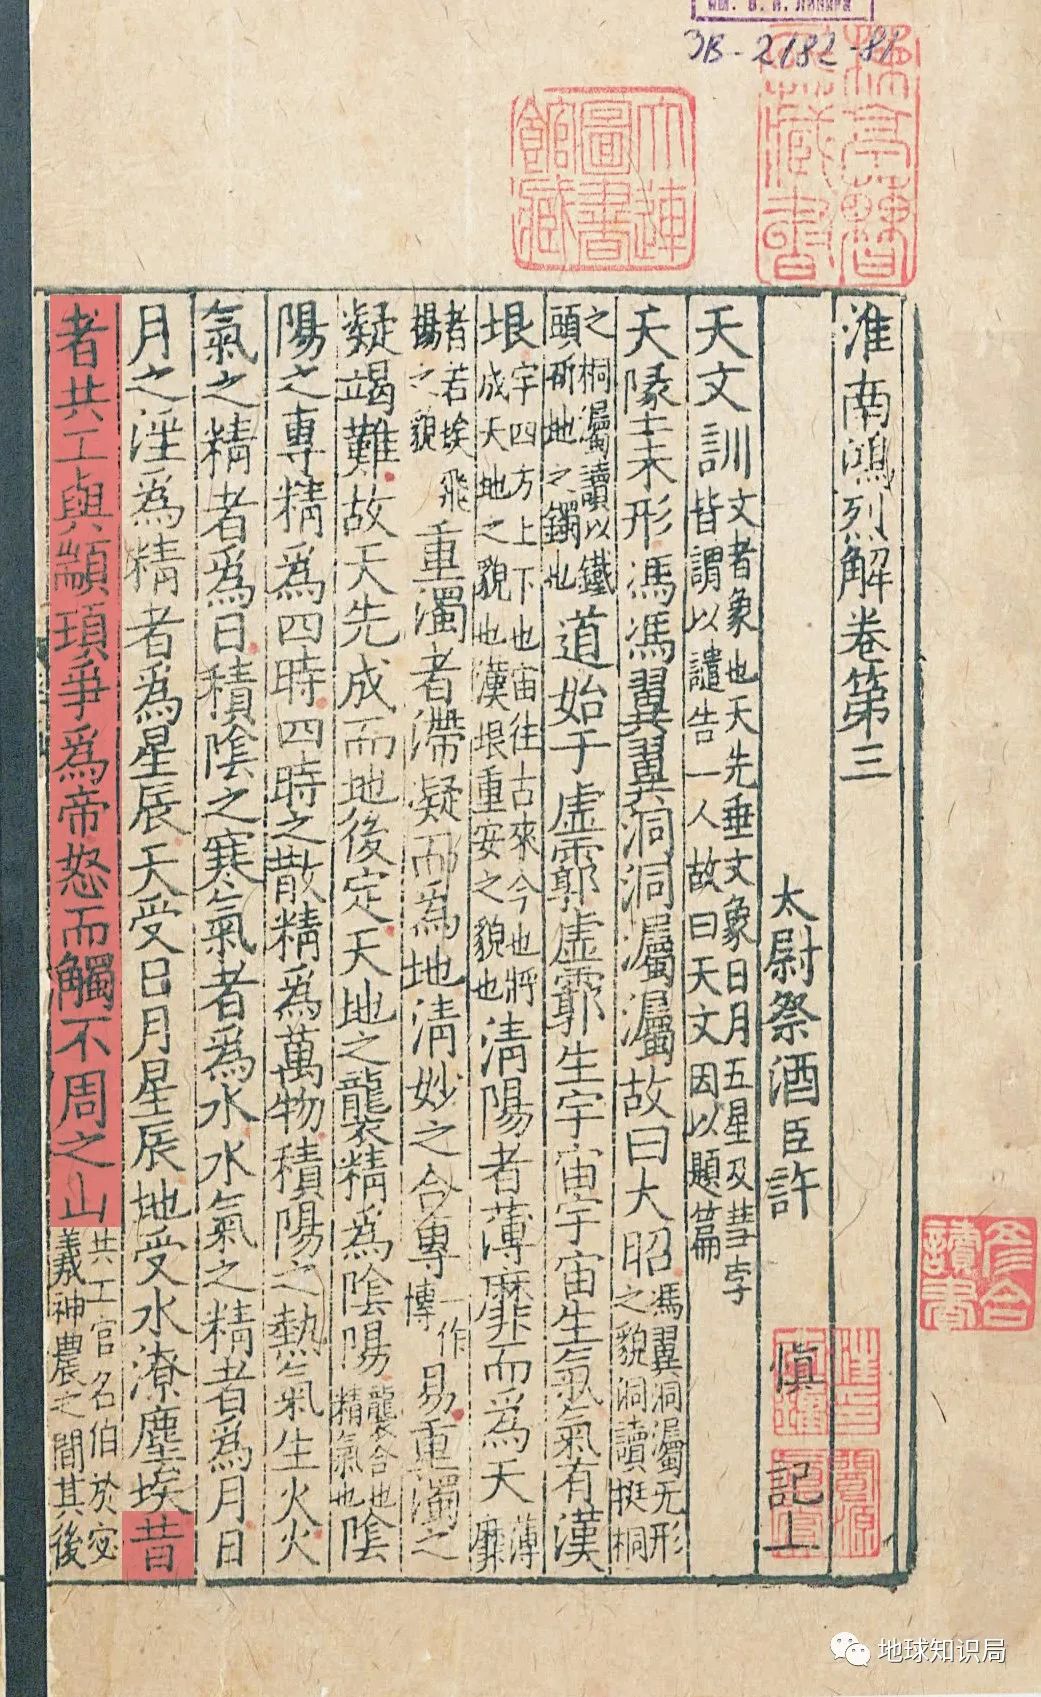 ЗВ-2182-81
大連圖書館藏
淮南鴻烈解卷第三
太尉祭酒臣許慎記上
天文訓文者象也天先垂文象日月五星及彗孛皆謂以譴告一人故曰天文因以題篇
天墬未形馮馮翼翼洞洞灟灟故曰大昭馮翼洞灟无形之貌洞讀挺桐
之桐灟讀以鐵頭斫地之鐲也道始于虛霩虛霩生宇宙宇宙生氣氣有漢
垠宇四方上下也宙往古來今也將成天地之貌也漢垠重安之貌也清陽者薄靡而為天薄靡
者若埃飛揚之貌重濁者滯凝而為地清妙之合專一作慱易重濁之
凝竭難故天先成而地後定天地之襲精為陰陽襲合也精氣也陰
陽之專精為四時四時之散精為萬物積陽之熱氣生火火
氣之精者為日積陰之寒氣者為水水氣之精者為月日
月之淫為精者為星辰天受日月星辰地受水潦塵埃昔
者共工與顓頊爭為帝怒而觸不周之山共工官名伯於虙羲神農之間其後
地球知识局